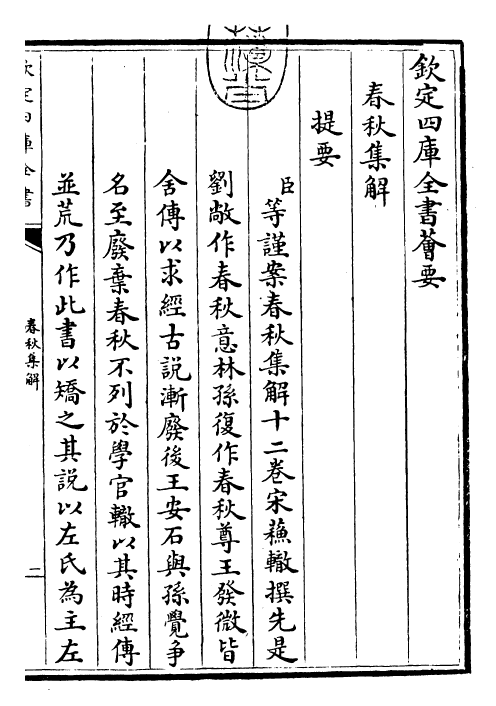 欽定四庫全書薈要
春秋集解
提要
臣等謹案春秋集解十二卷宋蘓轍撰先是
劉敞作春秋意林孫復作春秋尊王發微皆
舍傳以求經古説漸廢後王安石與孫覺争
名至廢棄春秋不列於學官轍以其時經傳
並荒乃作此書以矯之其説以左氏為主左
欽定四庫全書
春秋集解
二